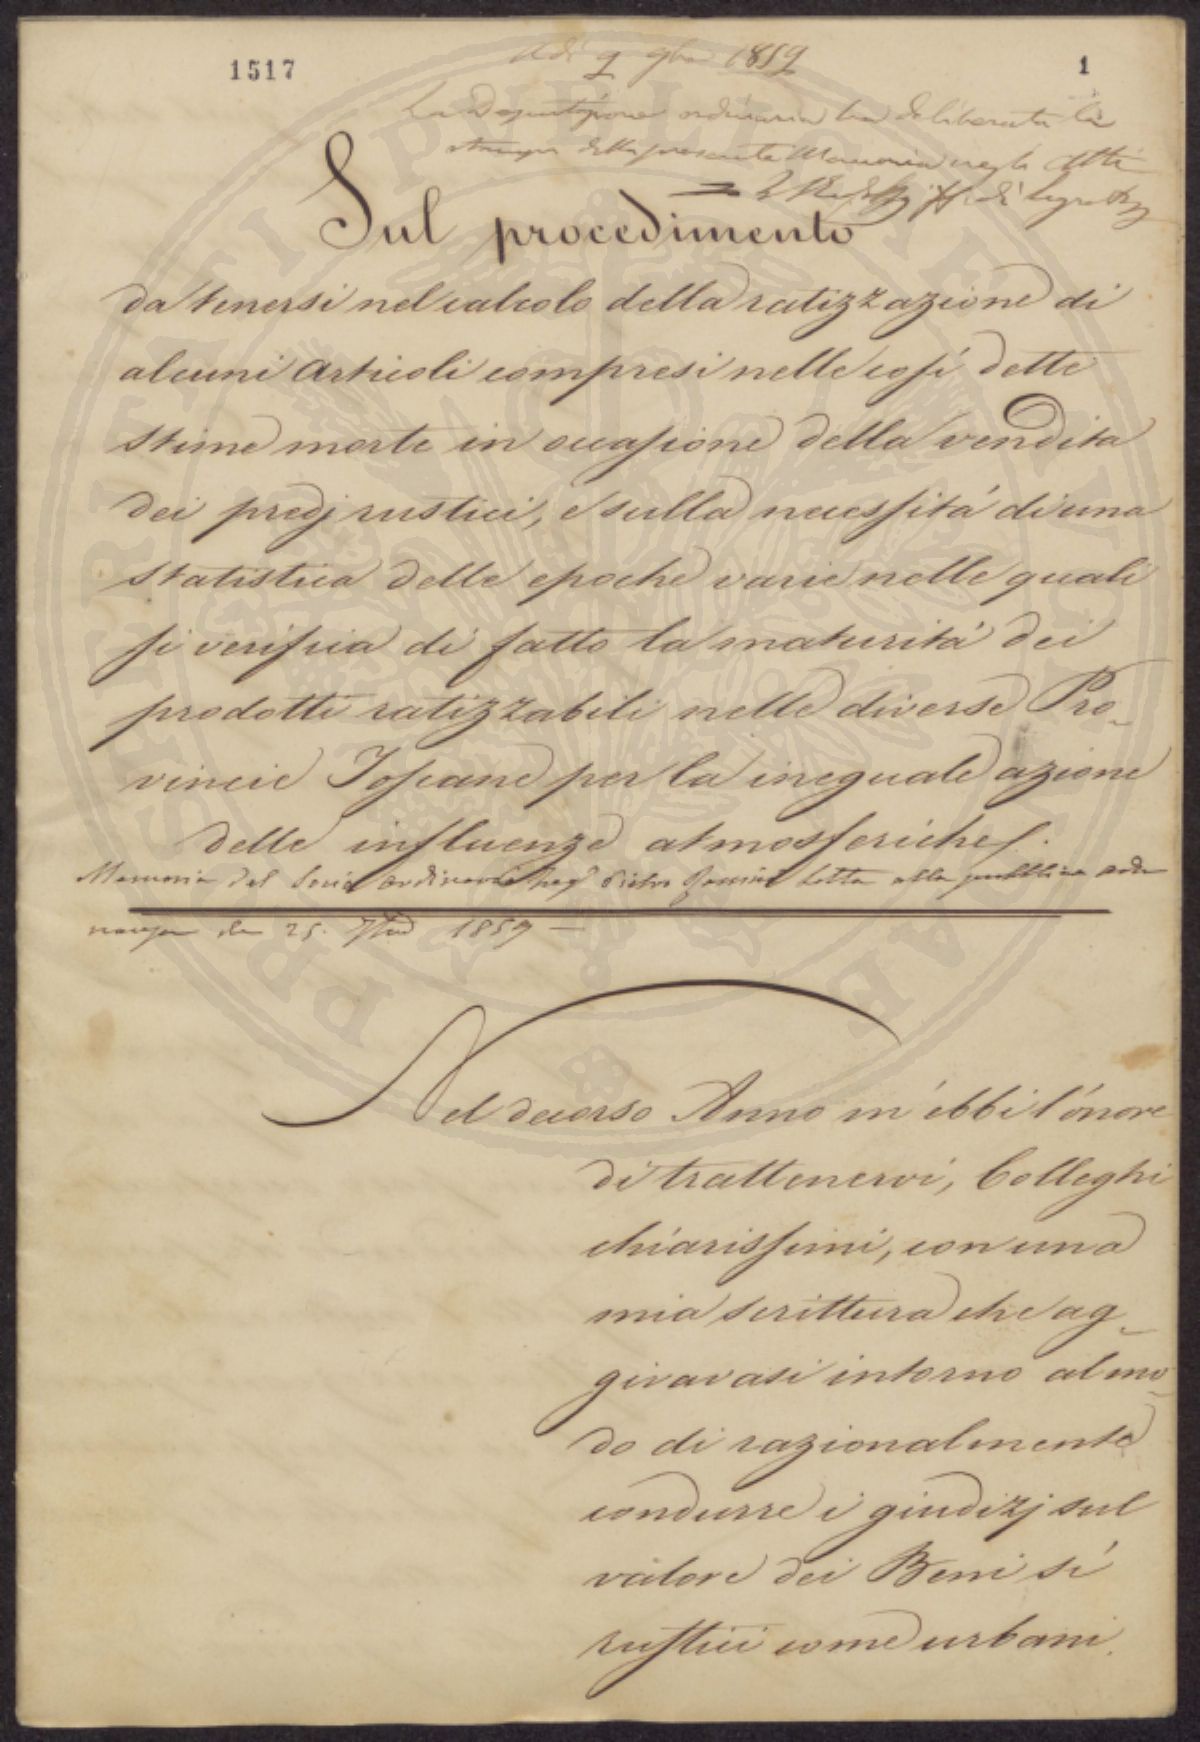 1517
1
Adì 9 9bre 1859
La Deputazione ordinaria ha deliberata la
stampa della presente Memoria negli Atti
Sul procedimento
da tenersi nel calcolo della ratizzazione di
alcuni articoli compresi nelle così dette
stime morte in occasione della vendita
dei predj rustici, e sulla necessità di una
statistica delle epoche varie nelle quali
si verifica di fatto la maturità dei
prodotti ratizzabili nelle diverse Pro-
vincie Toscane per la ineguale azione
delle influenze atmosferiche.
Memoria del Socio ordinario Pietro letta alla adu
nanza de 25. 7bre 1859 —
Nel decorso Anno m'ebbi l'onore
di trattenervi, Colleghi
chiarissimi, con una
mia scrittura che ag-
giravasi intorno al mo-
do di razionalmente
condurre i giudizj sul
valore dei Beni sì
rustici come urbani.
PRESIDIUM
PVBLICAE